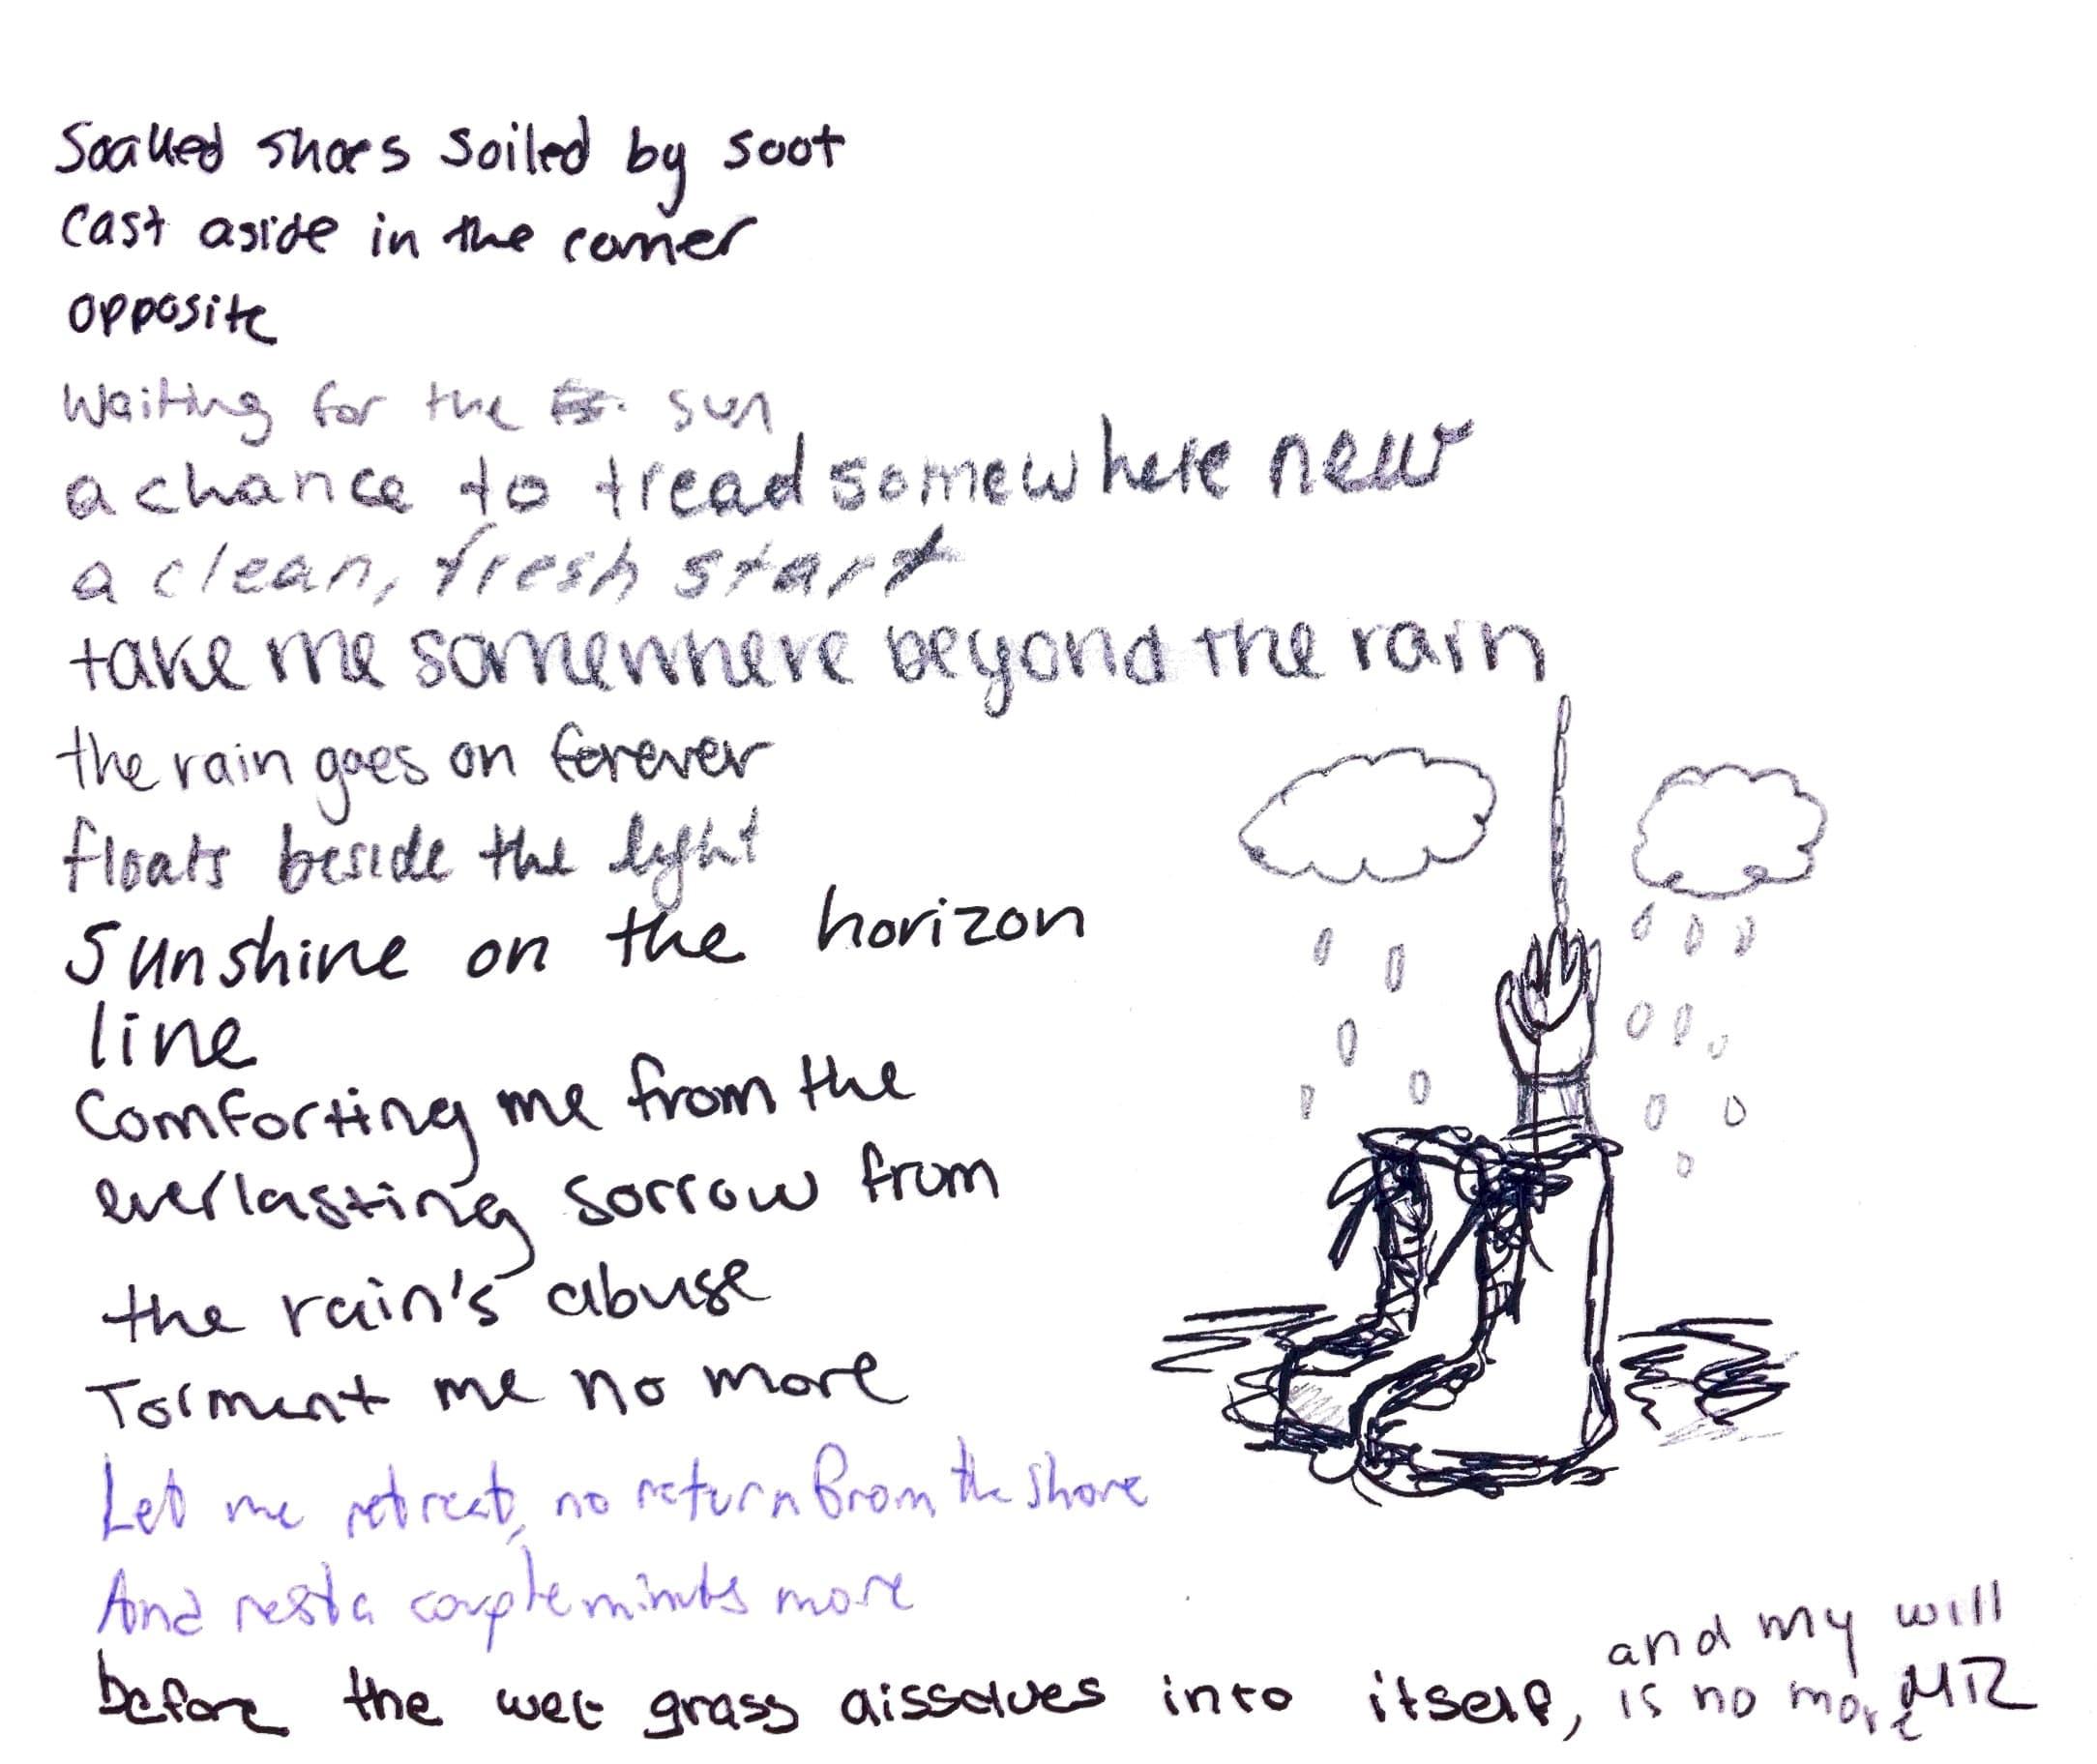 Soaked shoes soiled by soot
cast aside in the corner
opposite
Waiting for the sun
a chance to tread somewhere new
a clean, fresh start
take me somewhere beyond the rain
the rain goes on forever
floats beside the light
Sunshine on the horizon
line
Comforting me from the
everlasting sorrow from
the rain's abuse
Torment me no more
Let me retreat, no return from the shore
And rest a couple minutes more
before the wet grass dissolves into itself, and my will
is no more MR